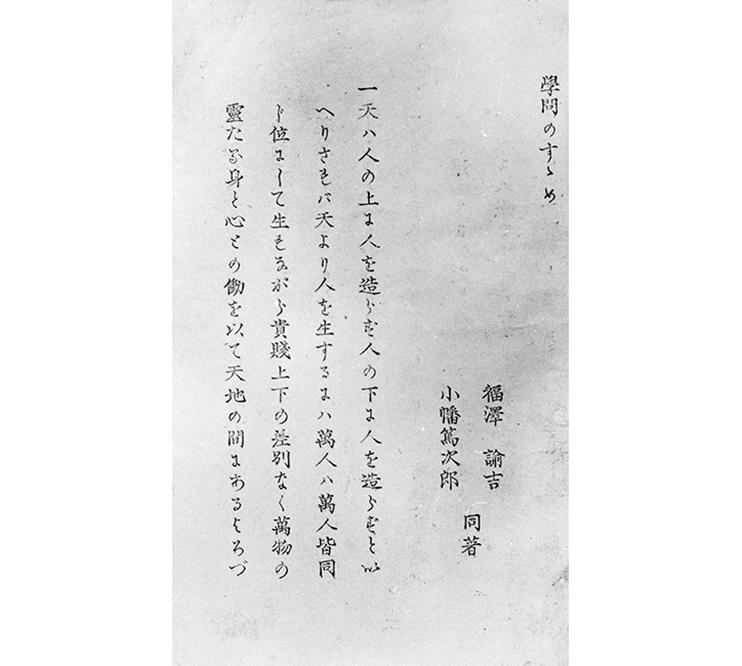 學問のすゝめ
福澤 諭吉
小幡篤次郎
同著
一天ハ人の上に人を造らず人の下に人を造らずと以
へりされバ天より人を生するにハ萬人ハ萬人皆同
じ位にして生れながら貴賤上下の差別なく萬物の
靈たる身と心との働を以て天地の間にあるよろづ